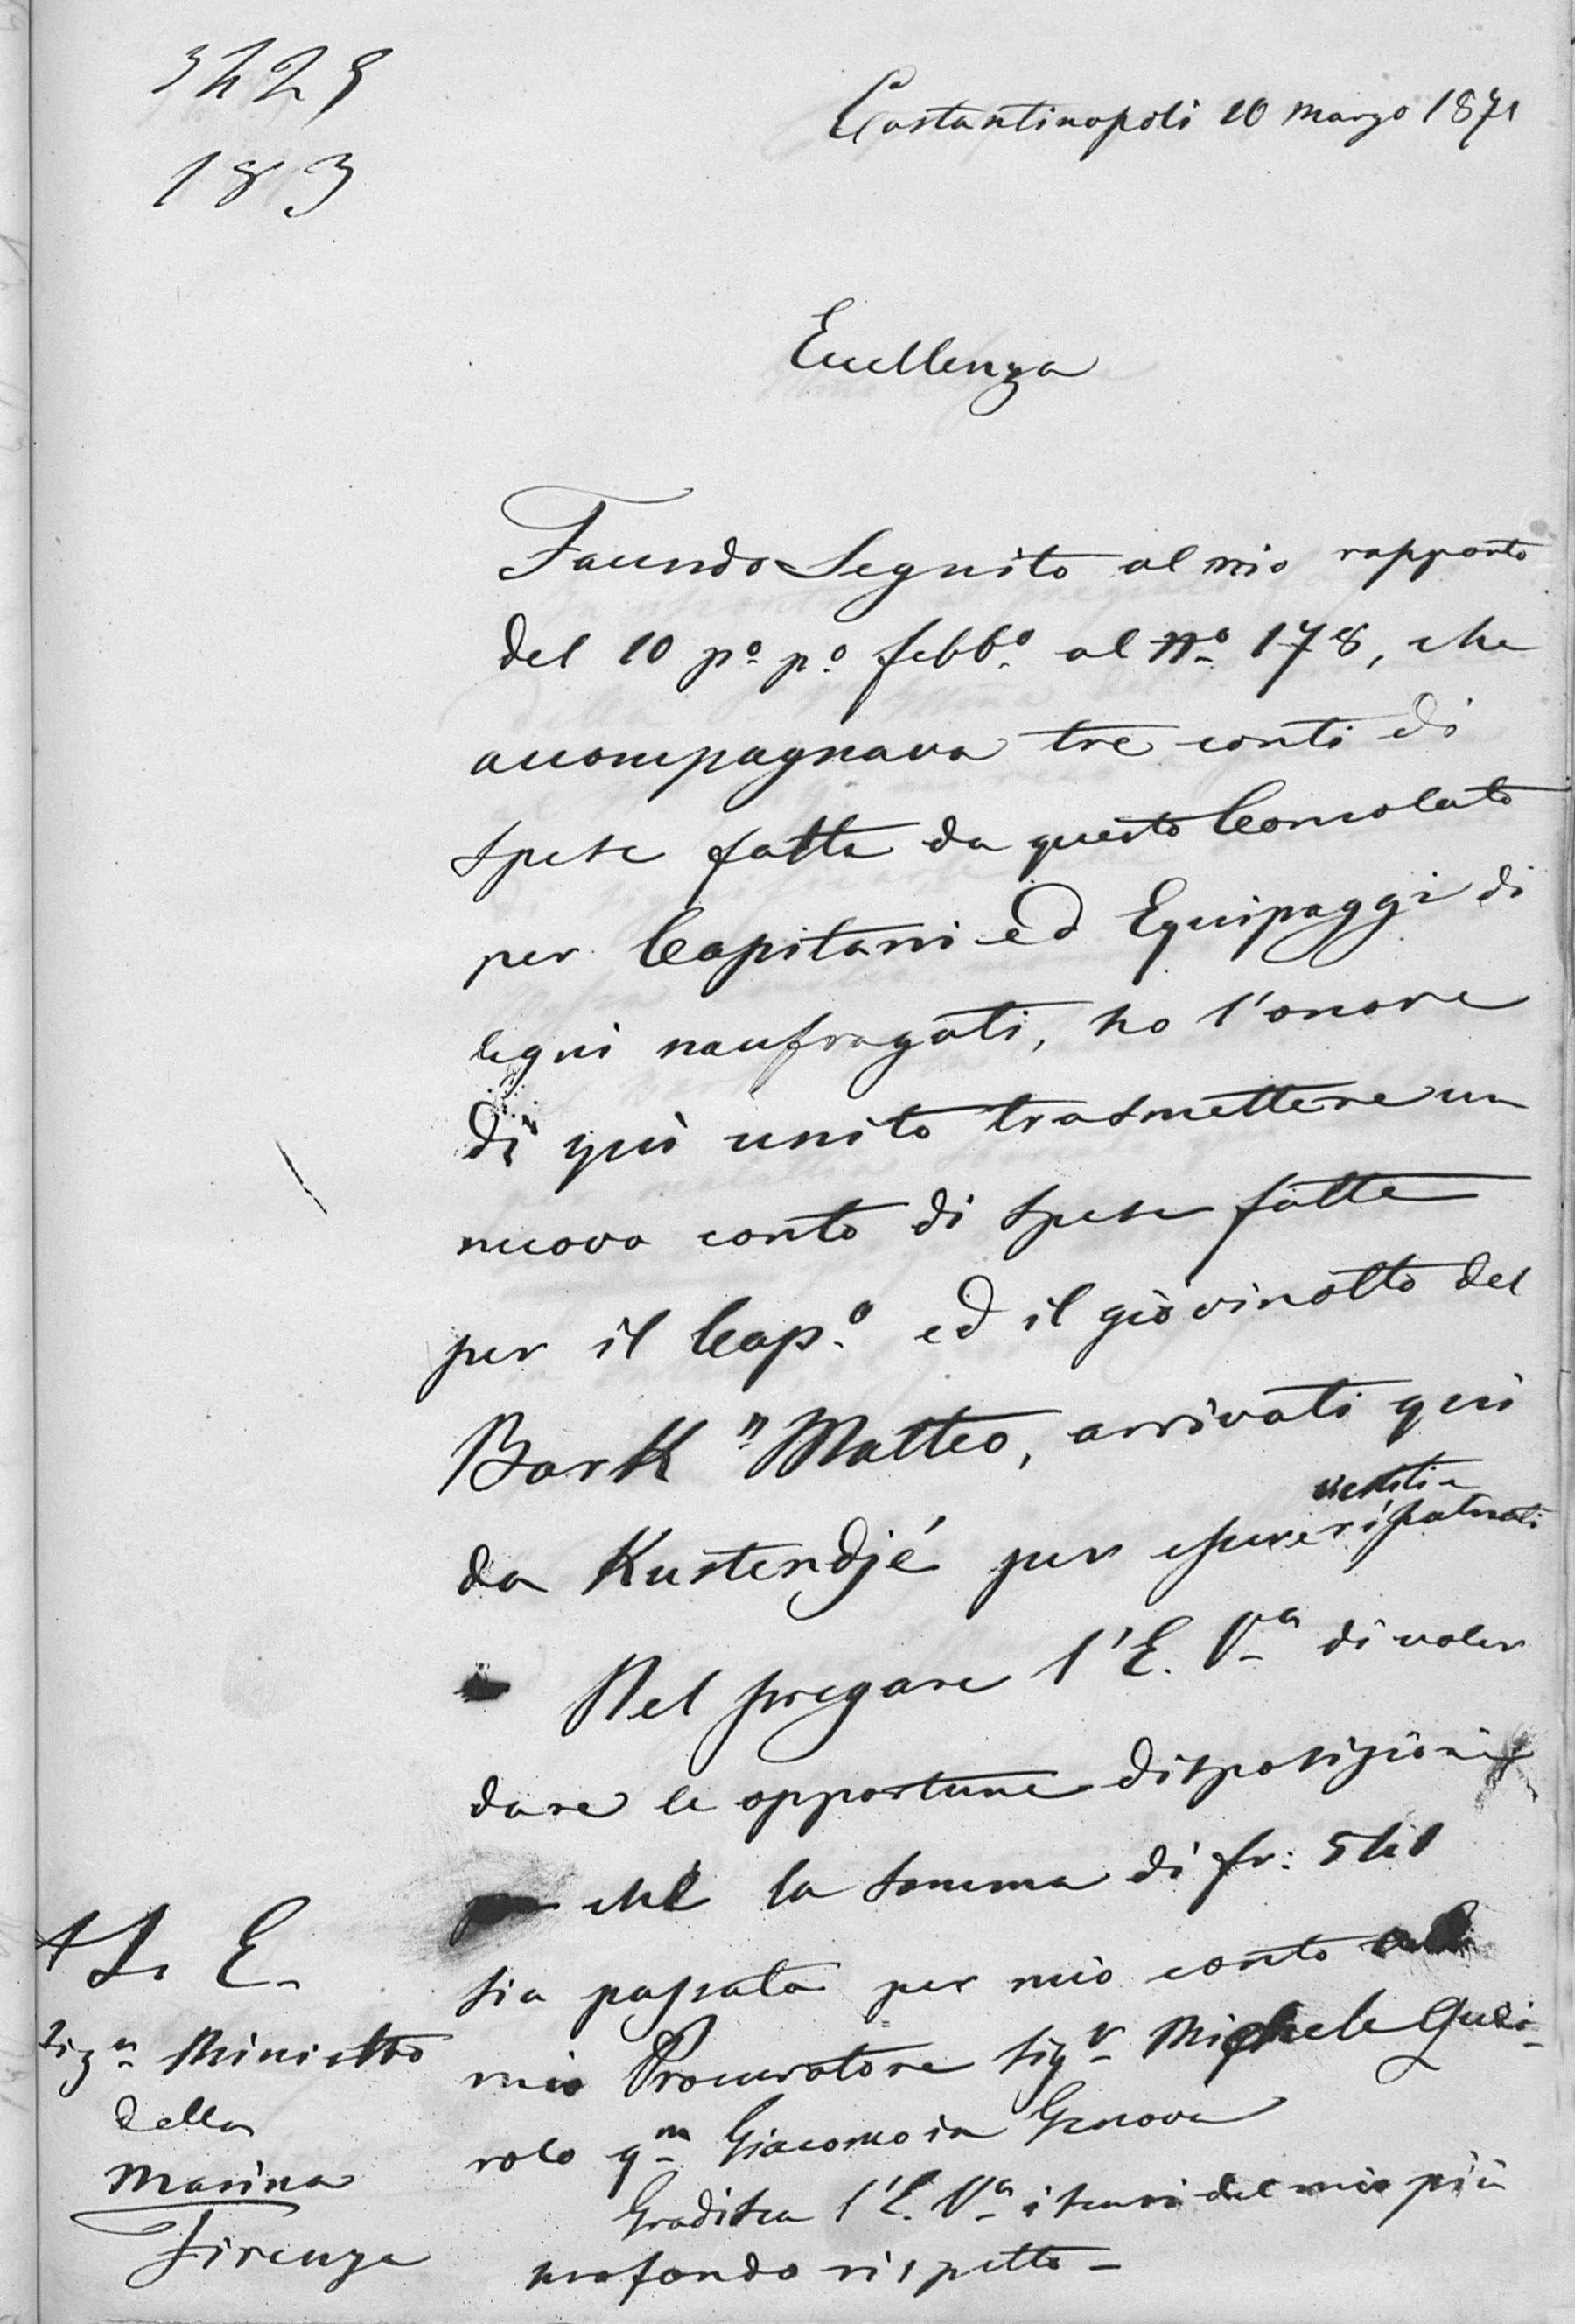 183
Costantinopoli 10 Marzo 1871
Eccellenza
Facendo Seguito al mio rapporto
del 10 p.º p.º febb.º al n.º 178, che
accompagnava tre conti di
spese fatte da questo Consolato
per Capitani ed Equipaggi di
legni naufragati, ho l'onore
di qui unito trasmettere un
nuovo conto di spese fatte
per il Cap.º ed il giovinotto del
Bark "Matteo, arrivati qui
da Kustendjé per essere vestiti e
ripatriati
Nel pregare l'E. V.a di voler
dare le opportune disposizioni
che la somma di fr:
sia passata per mio conto al
mio Procuratore Sig.r Michele
rolo q.m Giacomo in Genova
Gradisca l'E. V.a i sensi del mio più
profondo rispetto -
A S. E.
Sig.r Ministro
della
Marina
Firenze